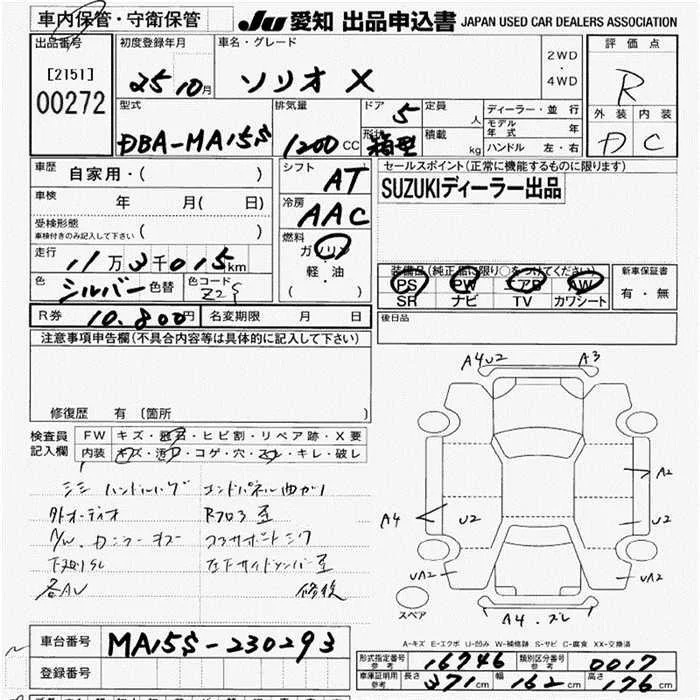 車内保管・守衛保管
JU 愛知 出品申込書 JAPAN USED CAR DEALERS ASSOCIATION
出品番号
[2151]
00272
初度登録年月
25 10月
車名・グレード
ソリオ X
2WD
・
4WD
評価点
R
外装 内装
D C
型式
DBA-MA15S
排気量
1200 CC
ドア 5
形状 箱型
定員 人
積載 kg
ディーラー・並行
モデル年式 年
ハンドル 左・右
車歴
自家用・( )
車検 年 月( 日)
受検形態
車検付きのみ記入して下さい ( )
走行
11万3千015km
色 シルバー 色替 色コード Z2S
シフト AT
冷房 AAC
燃料
ガソリン
軽・油
( )
セールスポイント(正常に機能するものに限ります)
SUZUKIディーラー出品
装備品(純正品に限り○をつけてください)
PS PW エアB AW
SR ナビ TV カワシート
新車保証書
有・無
R券 10,800円 名変期限 月 日
後日品
注意事項申告欄(不具合内容等は具体的に記入して下さい)
修復歴 有 〔箇所 〕
検査員
記入欄
FW キズ・飛石・ヒビ割・リペア跡・X要
内装 キズ・汚れ・コゲ・穴・スレ・キレ・破レ
エンドパネル曲がり
外オーディオ
各AU
修後
A4U2 A3
A2
A4 U2 U2
UA2 UA2
スペア
A4.ズレ
A-キズ E-エクボ U-凹み W-補修跡 S-サビ C-腐食 XX-交換済
車台番号 MA15S-230293
登録番号
形式指定番号 参考 16746
類別区分番号 参考 0017
車庫証明用 参考 長さ 371cm 幅 162cm 高さ 176cm